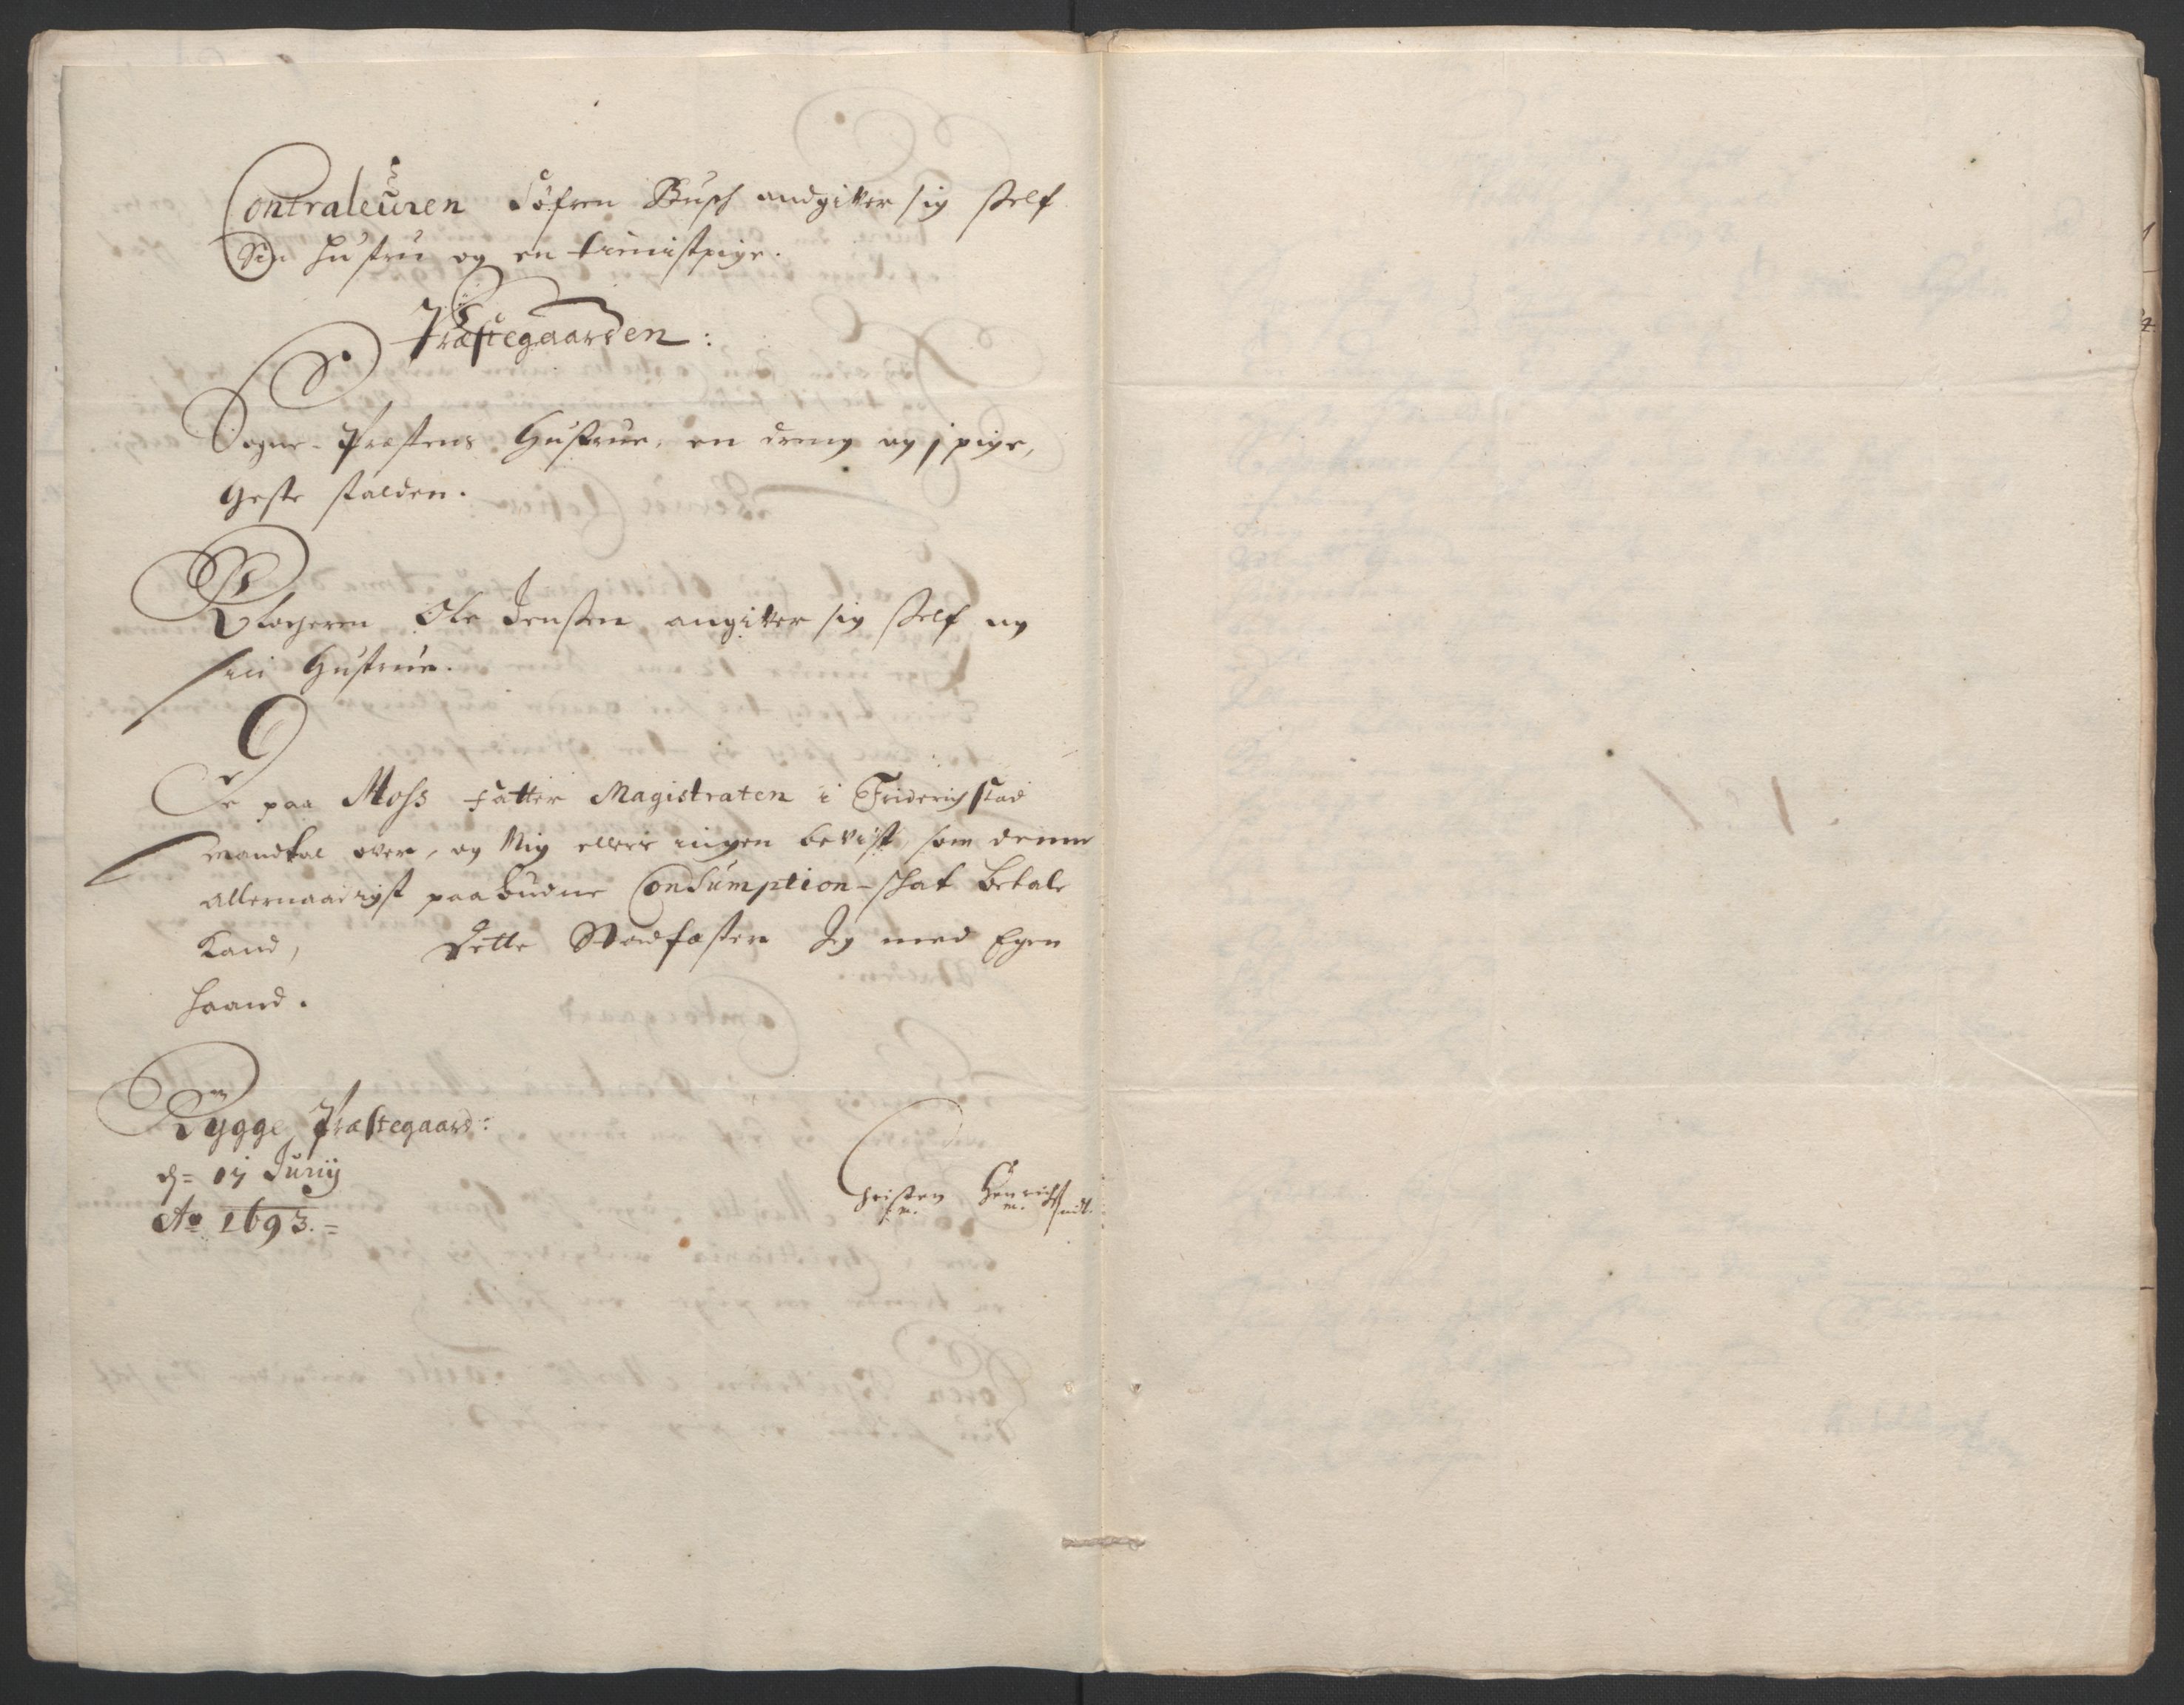 Contraleuren Søfren Busch andgiffver sig self
Sin hustru og en tienistpige.
Præstegaarden:
Sogne-Præstens Hustrue, en dreng og j pige,
Geste stalden.
Klocheren Ole Jensen angiffver sig self og
sin Hustrue.
De paa Moss fatter Magistraten i Friderichstad
mandtal over, og Mig ellers ingen bevist, som denne
allernaadigst paabudne Consumption-skat betale
Kand, Dette Stadfæster Jeg med Egen
haand.
Rygge Præstegaard:
d= 07 Junij
Ao 1693.=
Christen Henrichs